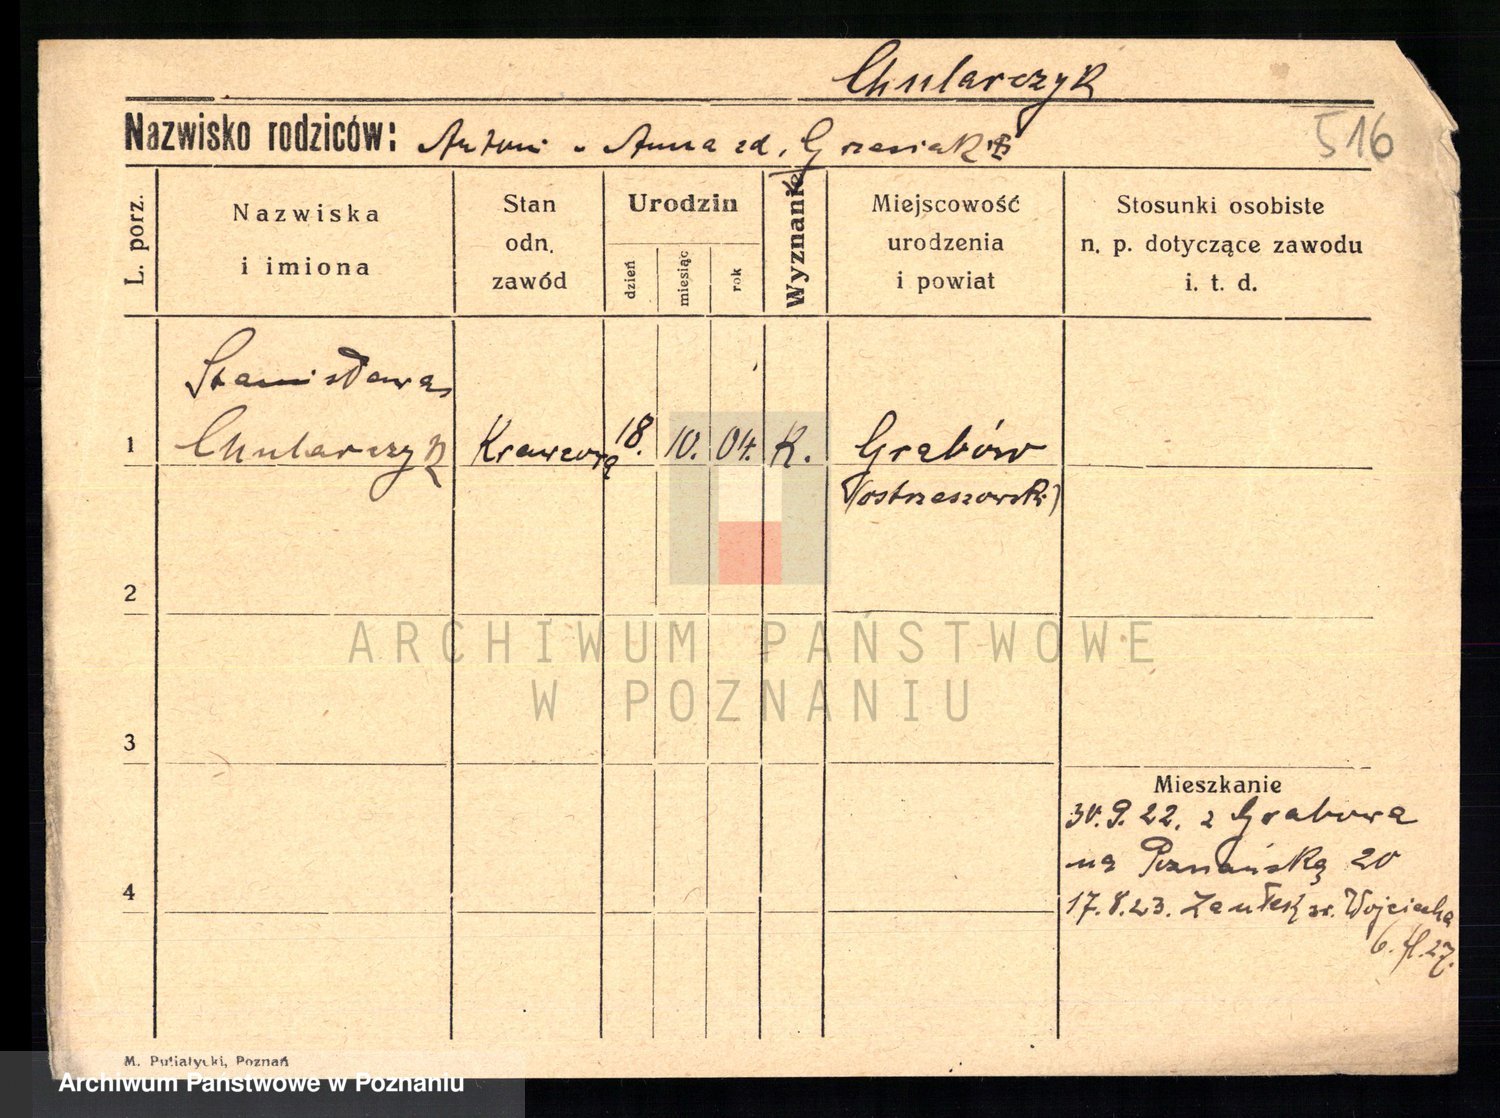 Chularczyk
Nazwisko rodziców: Antoni i Anna zd. Grzesiak
516
L. porz.
Nazwiska
i imiona
Stan
odn.
zawód
Urodzin
dzień
miesiąc
rok
Wyznanie
Miejscowość
urodzenia
i powiat
Stosunki osobiste
n. p. dotyczące zawodu
i. t. d.
Stanisława
1 Chularczyk Krawcową 18. 10. 04. K. Grabów
(ostrzeszowski)
2
ARCHIWUM PAŃSTWOWE
W POZNANIU
3
Mieszkanie
30.9.22. z Grabowa
na Poznańską 20
4
17.8.23. Zaułek św. Wojciecha
6. 27.
M. Putiatycki, Poznań
Archiwum Państwowe w Poznaniu